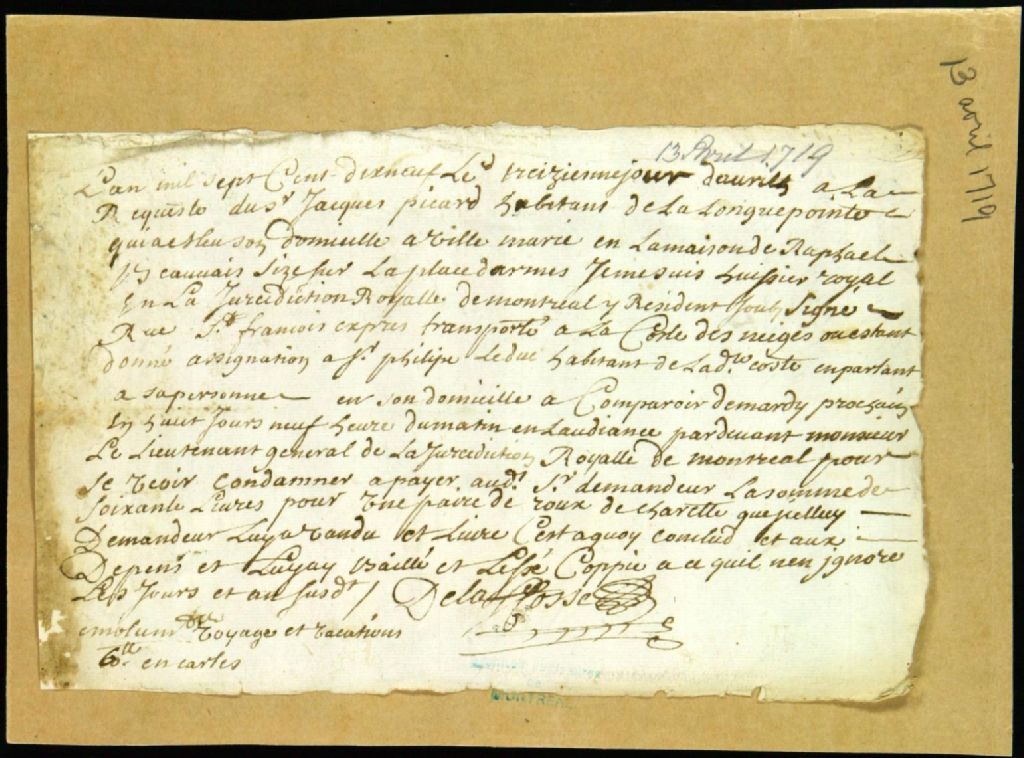 13 Avril 1719
13 avril 1719
L'an mil sept Cent dixneuf Le treiziennejour dauril a La
Requeste du Sr Jacques picard habitant de La Longuepointe
quiaesleu son domicille a ville marie en Lamaison de Raphael
Beauvais Size sur La place darmes Jemesuis huissier royal
En La Jurcidiction Royalle de montreal y Resident soub Signe
Rue St francois expres transporté a La Coste des neiges ou estant
donné assignation a Sr philipe Leduc habitant de Ladte coste enparlant
a sapersonne en son domicille a Comparoir demardy prochain
En huit Jours neuf heure dumatin en Laudiance pardevant monsieur
Le Lieutenant general de La Jurcidiction Royalle de montreal pour
se veoir Condamner apayer audt Sr demandeur Lasomme de
soixante Livres pour une paire de roux de charette que
Demandeur Luy a vandu et Livré Cest aquoy conclud et aux
Depens et Luy ay baillé et Lessé Coppie a ce quil nen jgnore
Les Jours et an susdt / Delafosse
emolumt voyage et vacations
6ll en cartes
MONTREAL